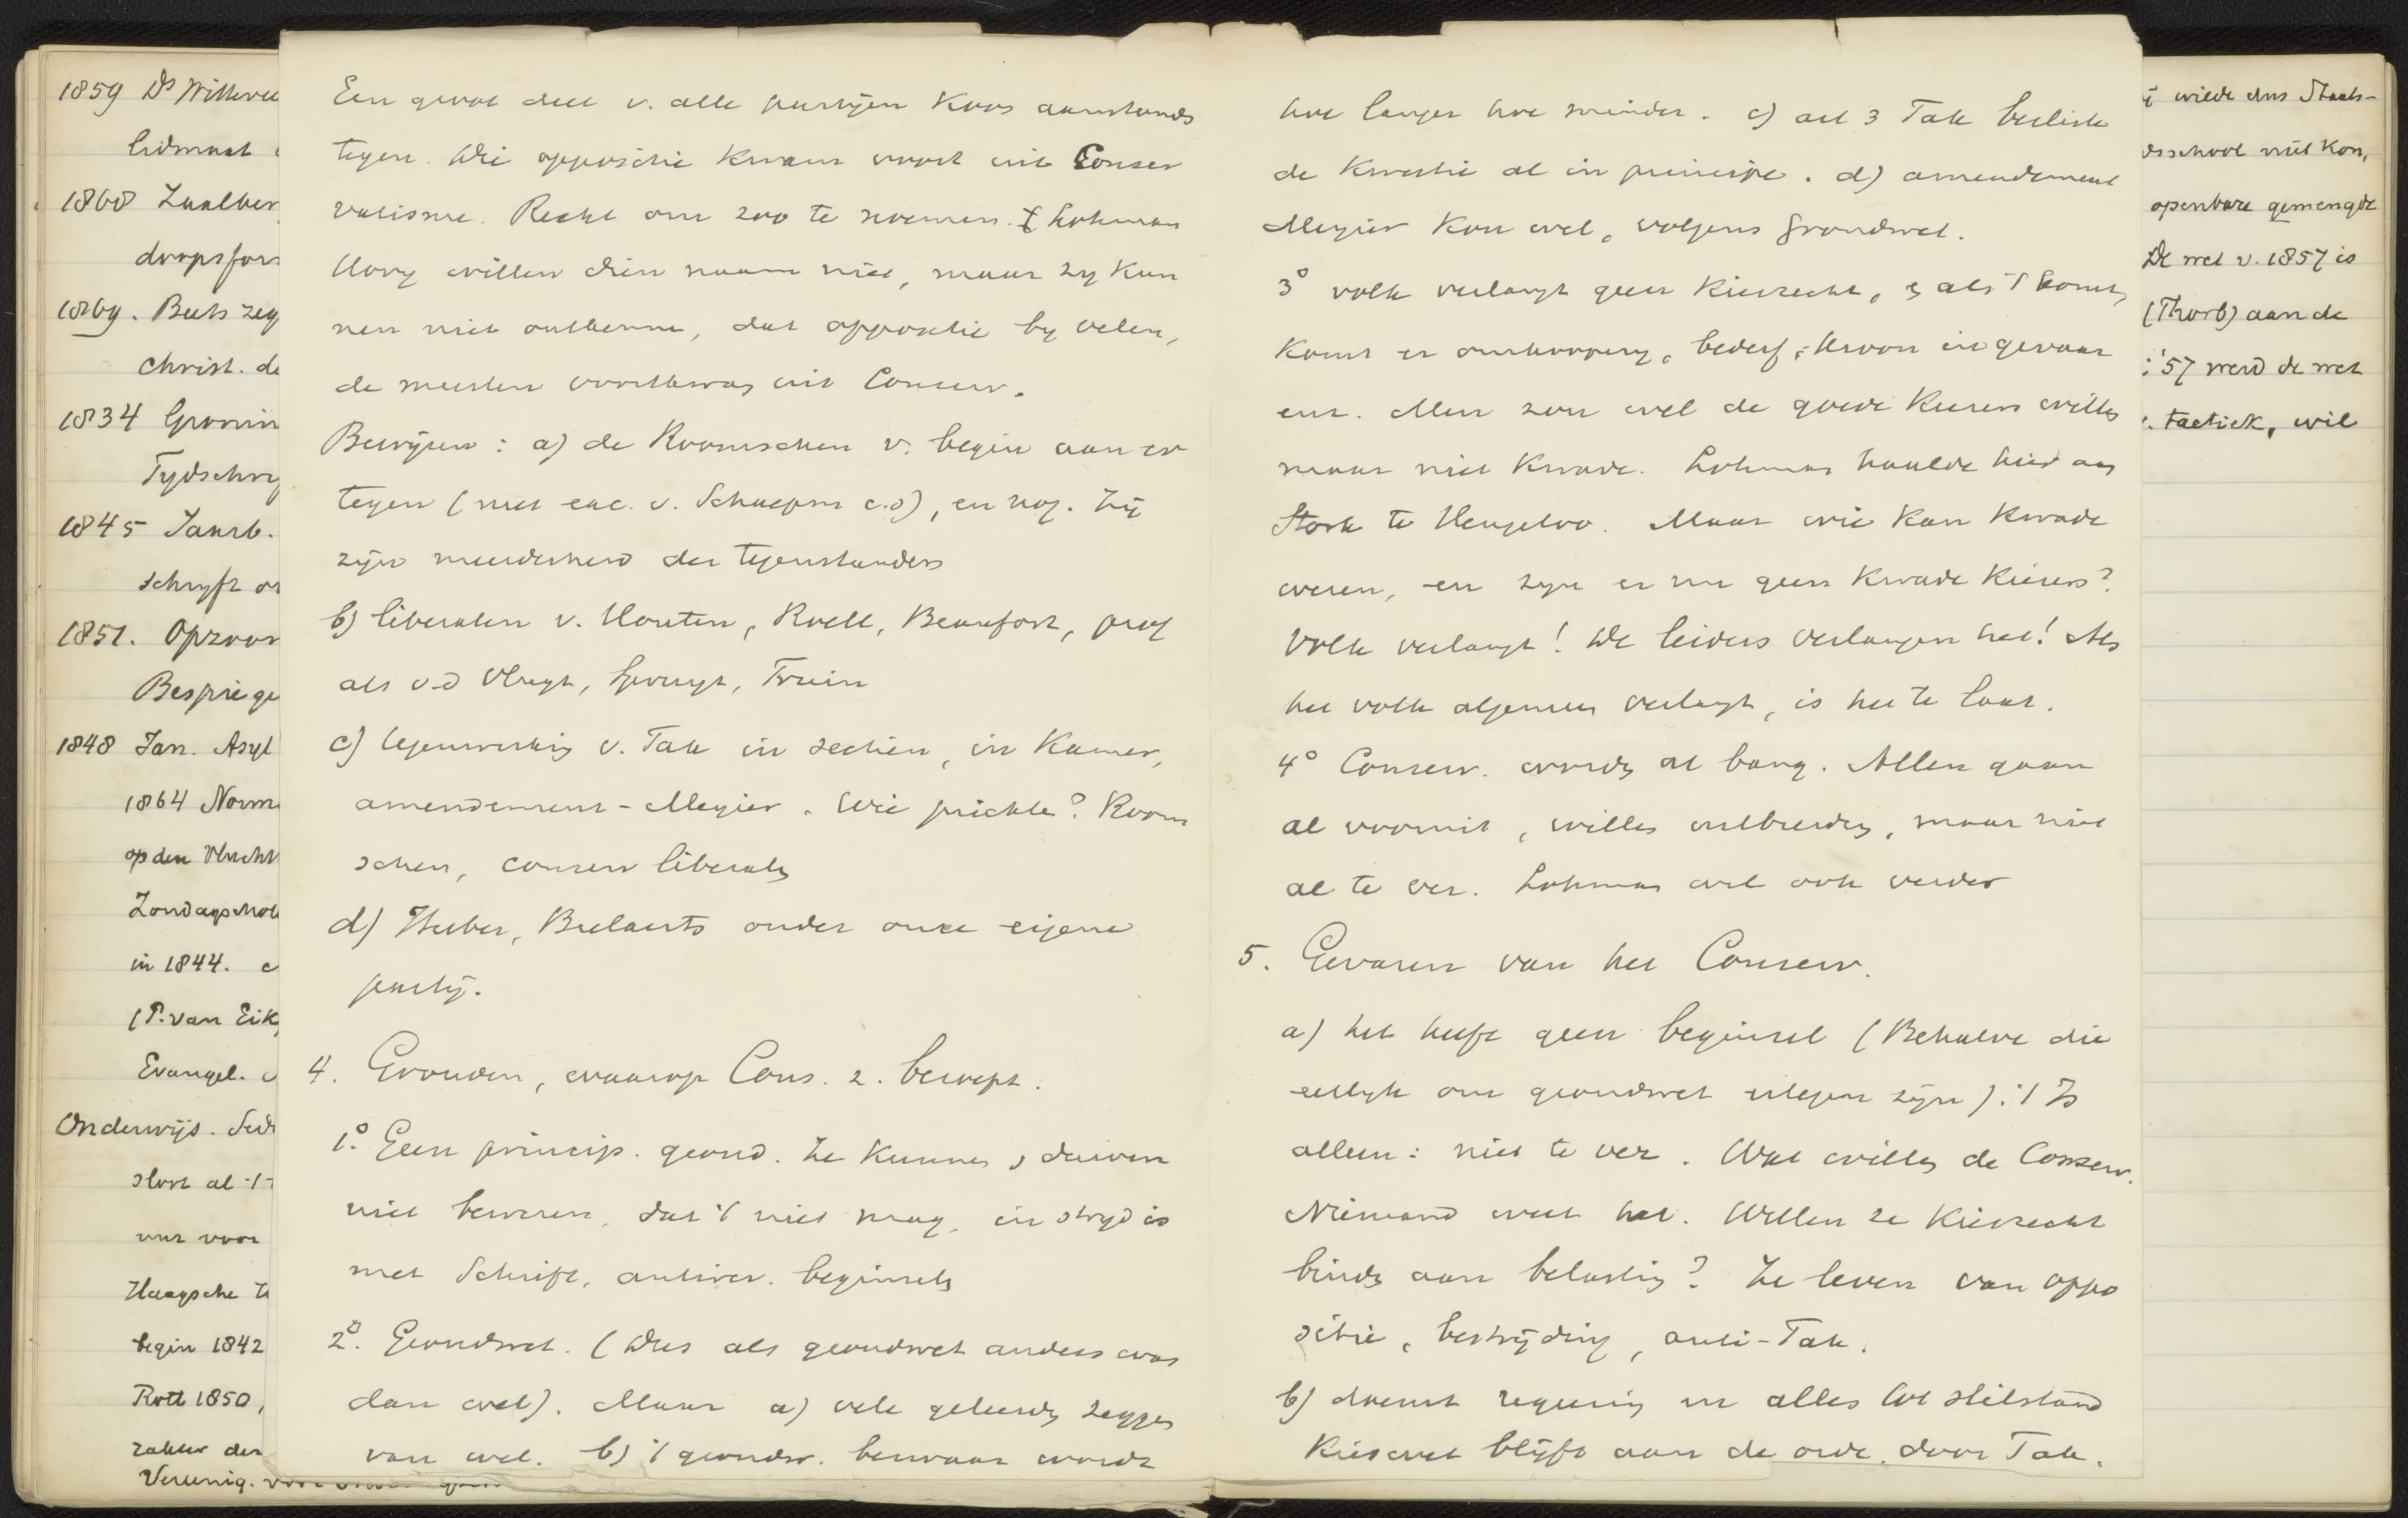 1859 Ds Witteve
lidmaat
1860 Zaalber
dorpsfor
1869. Beets zeg
christ. de
1834 Gronin
Tydschry
1845 Jaarb.
schryft o
1851. Opzoom
Bespiege
1848 Jan. Asyl
1864 Norm
op den
Zondagschol
in 1844. c
(P. van Eik
Evangel.
Onderwijs.
slort al
uur voor
Haagsche
begin 1842
Rott 1850,
zaken der
Vereenig. voor
Een groot deel v. alle partijen koos aanstonds
tegen. Die oppositie kwam voort uit Conser
vatisme. Recht om zoo te noemen. Lohman
Hovy willen dien naam niet, maar zy kun
nen niet ontkennen, dat oppositie by velen,
de meesten voortkwam uit Conserv.
Bewijzen : a) de Roomschen v. begin aan er
tegen (met exc. v. Schaepm c.s), en nog. Zij
zijn meerderheid der tegenstanders
b) liberalen v. Houten, Roëll, Beaufort, prof
als v.d Vlugt, Spruyt, Fruin
c) tegenwerking v. Tak in sectiën, in Kamer,
amendement - Meyier. Wie prikte? Room
schen, conserv liberalen
d) Huber, Beelaerts onder onze eigene
partij.
4. Gronden, waarop Cons. z. beroept.
1.° Geen princip. grond. Ze kunnen, durven
niet beweren, dat 't niet mag, in stryd is
met Schrift, antirev. beginselen
2.° Grondwet. (Dus als grondwet anders was
dan wel). Maar a) vele geleerden zeggen
van wel. b) 't grondw. bezwaar wordt
hoe langer hoe minder. c) art 3 Tak besliste
de kwestie al in principe. d) amendement
Meyier kon wel, volgens Grondwet.
3° volk verlangt geen kiesrecht, & als 't komt,
komt er omkooping, bederf, troon in gevaar
enz. Men zou wel de goede kiezers willen
maar niet kwade. Lohman haalde hier aan
Stork te Hengeloo. Maar wie kan kwade
weren, en zyn er nu geen kwade kiezers?
Volk verlangt! De leiders verlangen het! Als
het volk algemeen verlangt, is het te laat.
4° Conserv. worden al bang. Allen gaan
al vooruit, willen uitbreiden, maar niet
al te ver. Lohman wil ook verder
5. Gevaren van het Conserv.
a) het heeft geen beginsel (Behalve die
eerlyk om grondwet ertegen zijn). 't Is
alleen: niet te ver. Wat willen de Conserv.
Niemand weet het. Willen ze kiesrecht
binden aan belasting? Ze leven van oppo
sitie, bestrijding, anti-Tak.
b) doemt regeering en alles tot stilstand
Kieswet blijft aan de orde, door Tak.
wilde dus Staats-
school niet kon,
openbare gemengde
De wet v. 1857 is
(Thorb) aan de
'57 werd de wet
tactiek, wil